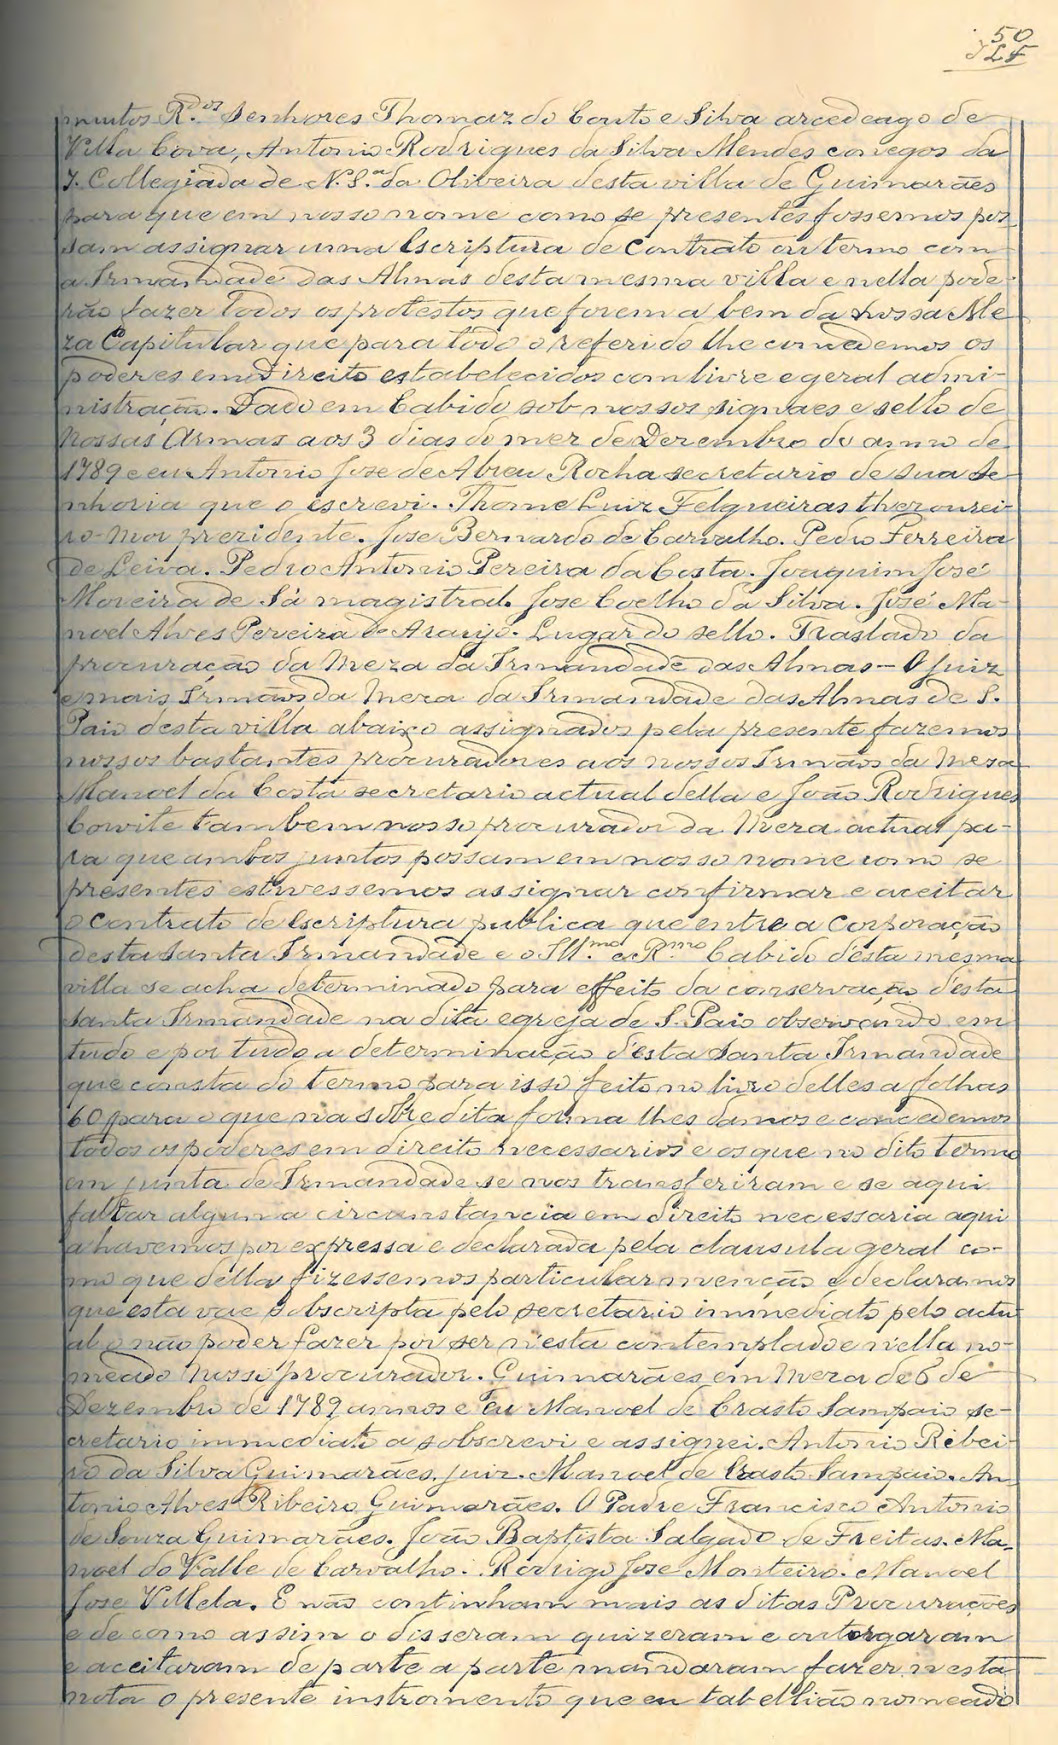 50
muitos R.dos Senhores Thomaz do Couto e Silva arcedeago de
Villa Cova, Antonio Rodrigues da Silva Mendes conegos da
I. Collegiada de N. S.a da Oliveira desta villa de Guimarães
para que em nosso nome como se presentes fossemos pos-
sam assignar uma Escriptura de contrato ou termo com
a Irmandade das Almas desta mesma villa e nella pode-
rão fazer todos os protestos que forem a bem da nossa Me
za Capitular que para todo o referido lhe concedemos os
poderes em Direito estabelecidos com livre e geral admi-
nistração. Dado em Cabido sob nossos signaes e sello de
Nossas Armas aos 3 dias do mez de Dezembro do anno de
1789 e eu Antonio Jose de Abreu Rocha secretario de sua Se-
nhoria que o escrevi. Thome Luiz Felgueiras thezourei-
ro-mor prezidente. Jose Bernardo de Carvalho. Pedro Ferreira
de Leiva. Pedro Antonio Pereira da Costa. Joaquim José
Moreira de Sá magistral. Jose Coelho da Silva. José Ma-
noel Alves Pereira de Araujo. Lugar do sello. Traslado da
procuração da Meza da Irmandade das Almas – O Juiz
e mais Irmãos da Meza da Irmandade das Almas de S.
Paio desta villa abaixo assignados pela presente fazemos
nossos bastantes procuradores aos nossos Irmãos da Meza
Manoel da Costa secretario actual della e João Rodrigues
Cowite tambem nosso procurador da Meza actual pa-
ra que ambos juntos possam em nosso nome como se
presentes estivessemos assignar confirmar e aceitar
o contrato de Escriptura publica que entre a Corporação
desta Santa Irmandade e o Ill.mo e R.mo Cabido d'esta mesma
villa se acha determinado para effeito da conservação d'esta
Santa Irmandade na dita egreja de S. Paio observando em
tudo e por tudo a determinação d'esta Santa Irmandade
que consta do termo para isso feito no livro delles a folhas
60 para o que na sobredita forma lhes damos e concedemos
todos os poderes em direito necessarios e os que no dito termo
em junta de Irmandade se nos transferiram e se aqui
faltar alguma circunstancia em direito necessaria aqui
a havemos por expressa e declarada pela clausula geral co-
mo que della fizessemos particular menção e declaramos
que esta vae subscripta pelo secretario immediato pelo actu
al o não poder fazer por ser n'esta contemplado e n'ella no-
meado nosso procurador. Guimarães em Meza de 6 de
Dezembro de 1789 annos e Eu Manoel de Crasto Sampaio se-
cretario immediato a sobscrevi e assignei. Antonio Ribei-
ro da Silva Guimarães, juiz. Manoel de Crasto Sampaio. An-
tonio Alves Ribeiro Guimarães. O Padre Francisco Antonio
de Souza Guimarães. João Baptista Salgado de Freitas. Ma-
noel do Valle de Carvalho. Rodrigo Jose Monteiro. Manoel
Jose Villela. E não continham mais as ditas Procurações
e de como assim o disseram quizeram e outorgaram
e aceitaram de parte a parte mandaram fazer n'esta
nota o presente instromento que eu tabellião nomeado